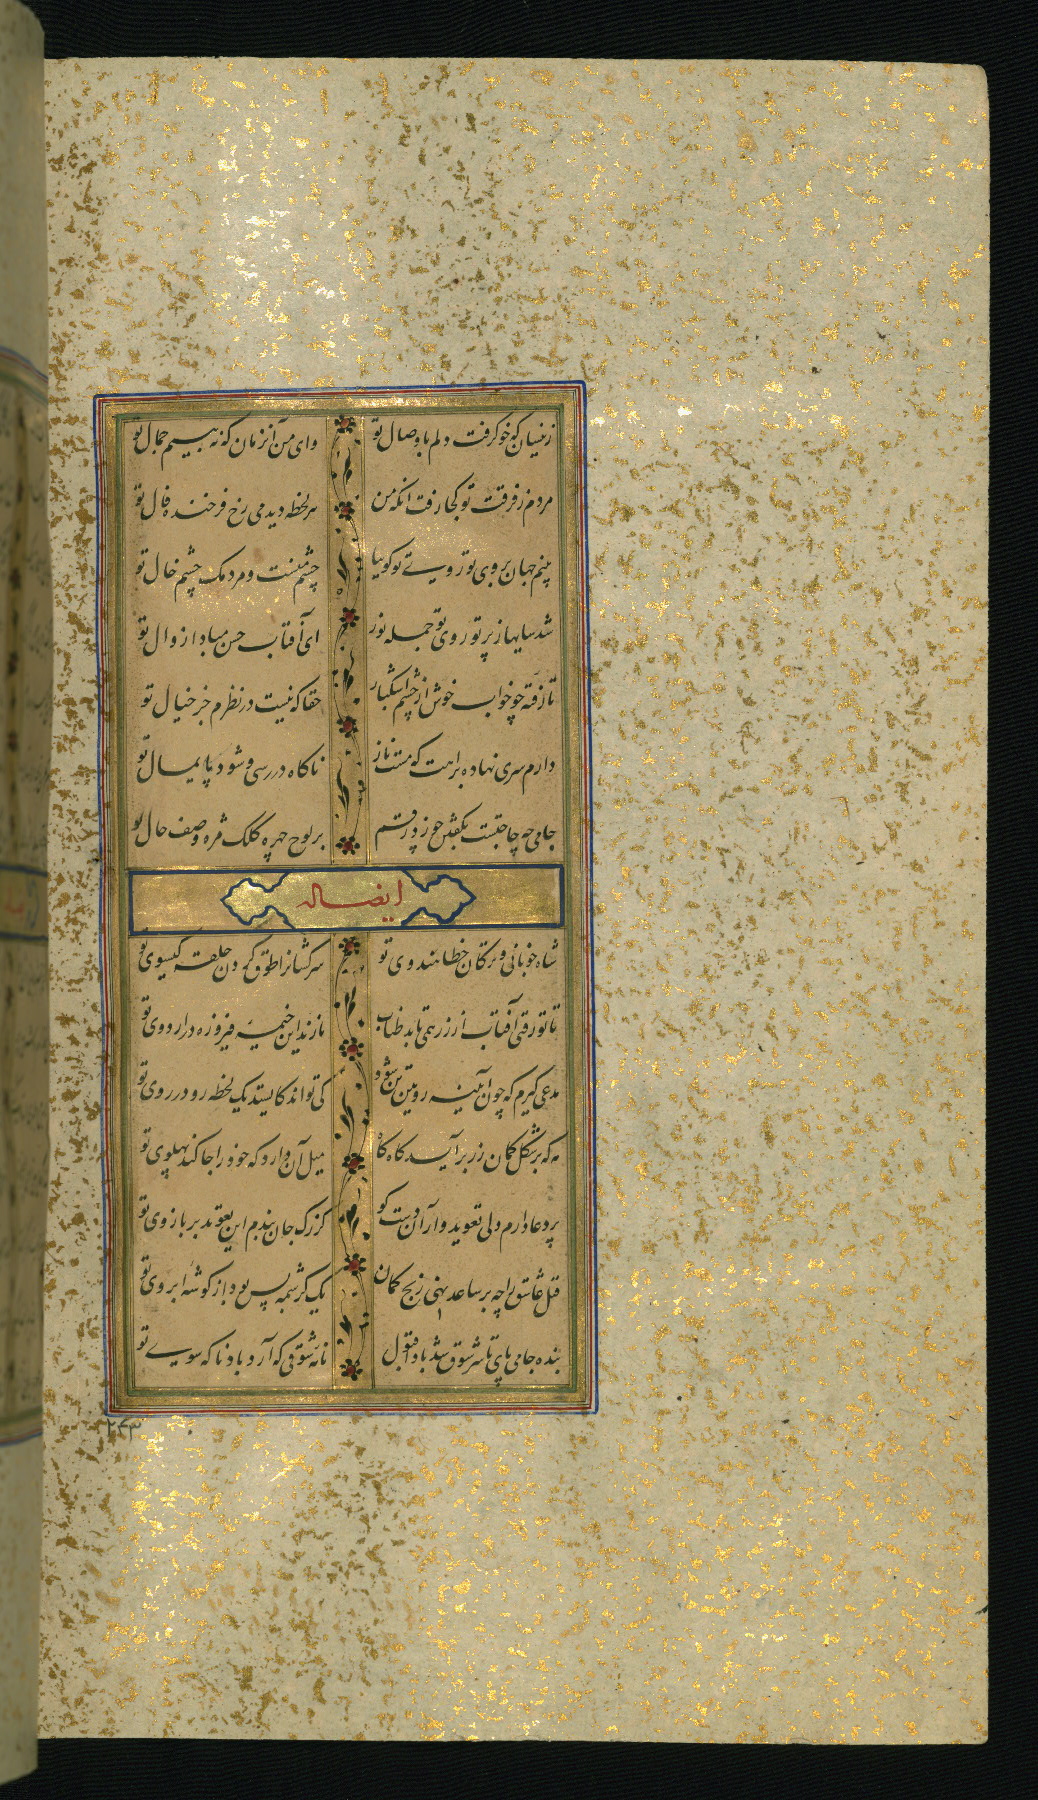 زینسان که خو گرفت دلم با وصال تو وای من آنزمان که نه بینم جمال تو
مردم ز فرقت تو کجا رفت آنکه من هر لحظه دیدمی رخ فرخنده فال تو
بینم جهان بروی تو روی تو گوییا چشم منست و مردمک چشم خال تو
شد سایها ز پرتو روی تو جمله نور ای آفتاب حسن مبادا زوال تو
تا رفته چو خواب خوش از چشم اشکبار حقا که نیست در نظرم جز خیال تو
دارم سری نهاده براهت که مست ناز ناگاه در رسی و شود پایمال تو
جامی چه حاجتست بر لوح چهره کلک مژه وصف حال تو
ایضا له
شاه خوبانی و ترکان خطا هندوی تو سرکشانرا طوق گردن حلقه گیسوی تو
تا تو رفتی آفتاب از زر همی تابد طناب تا زند این خیمه فیروزه در اردوی تو
مدعی گیرم که چون آیینه رویین تن شود کی تواند کایستد یک لحظه رو در روی تو
مه که بر شکل کمان زر برآید گاه گاه میل آن دارد که خود را جا کند پهلوی تو
پر دعا دارم دلی تعویذ وار آن دست کو کز رگ جان بندم این تعویذ بر بازوی تو
قتل عاشق را چه بر ساعد نهی رنج کمان یک کرشمه بس بود از گوشه ابروی تو
بنده جامی پای تا سر شوق شد بادا قبول نامه شوقی که آرد باد ناگه سوی تو
۲۴۳